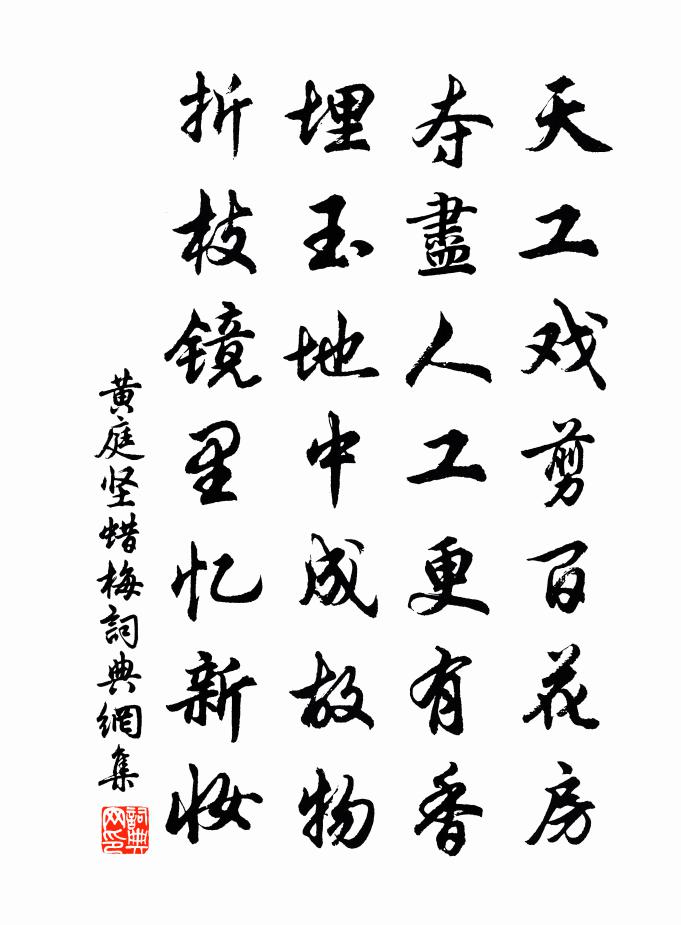 天工戏剪百花房
夺盡人工更有香
埋玉地中成故物
折枝镜里忆新妆
黄庭坚蜡梅詞典網集
詞典网印